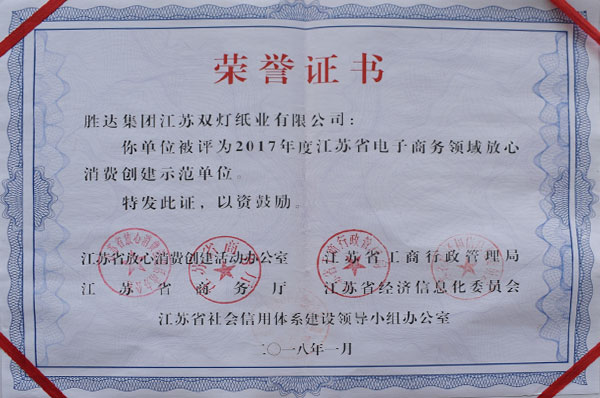 荣誉证书
胜达集团江苏双灯纸业有限公司：
你单位被评为2017年度江苏省电子商务领域放心
消费创建示范单位。
特发此证，以资鼓励。
江苏省放心消费创建活动办公室 江苏省工商行政管理局
江苏省商务厅 江苏省经济信息化委员会
江苏省社会信用体系建设领导小组办公室
二〇一八年一月